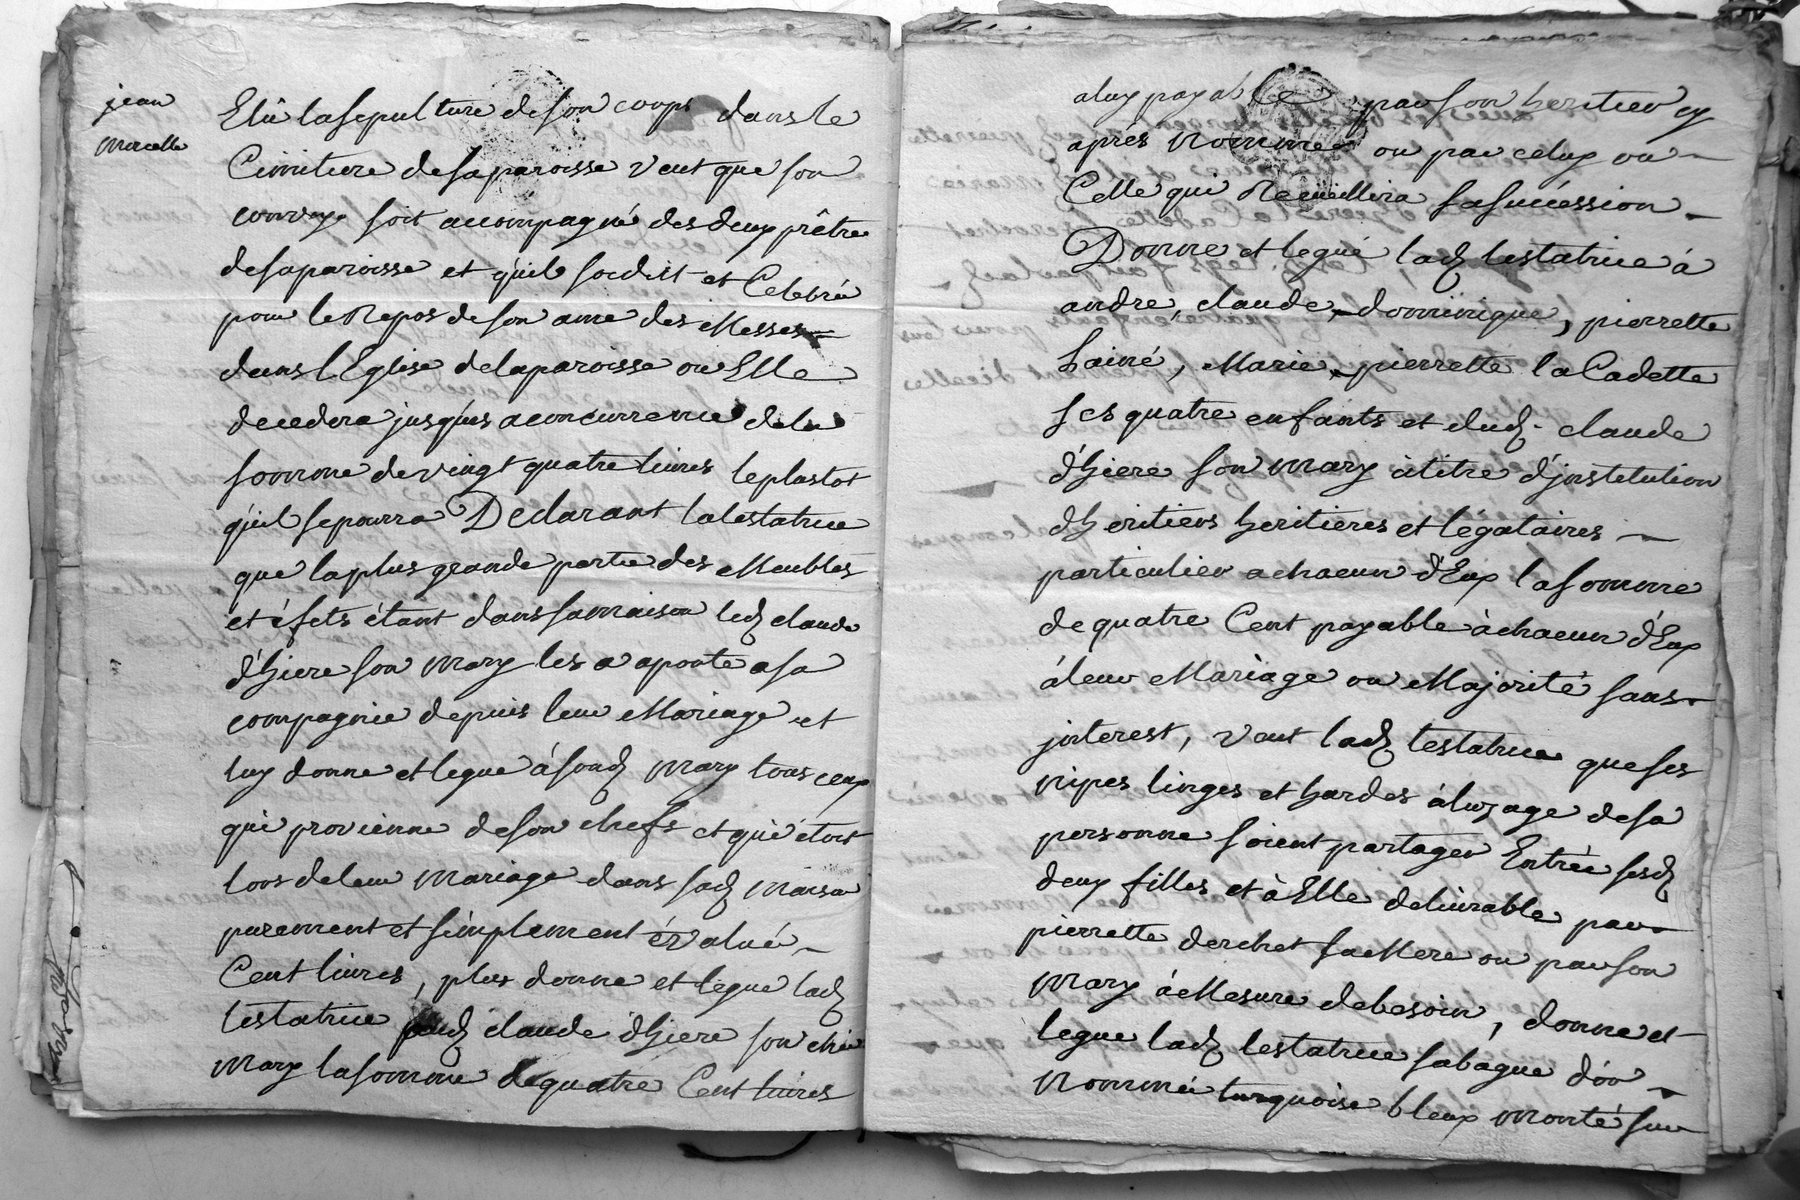 jean
marcelle
Elû la sepulture de son corps dans le
Cimitiere de sa paroisse veut que son
convoy soit accompagné des deux prêtre
de sa paroisse et quil soit dit et Celebré
pour le Repos de son ame des Messes
dans l'Eglise de la paroisse ou Elle
decedera jusques a concurrence de la
somme de vingt quatre livres le plustot
quil se pourra Declarant la testatrice
que la plus grande partie des Meubles
et éfets étant dans sa maison led claude
d'hiere son mary les a aporte a sa
compagnie depuis leur Mariage et
luy donne et legue à sond mary tous ceux
qui provienne de son chefs et qui étoit
lors de leur mariage dans sad maison
purement et simplement évalué
Cent livres, plus donne et legue lad
testatrice aud claude d'hiere son cher
mary la somme de quatre Cent livres
a luy payable par son heritier cy
aprés nommé ou par celuy ou
Celle qui Recueillira sa succéssion
Donne et legué lad testatrice à
andre, claude, dominique, pierrette
l'ainé, Marie, pierrette la Cadette
ses quatre enfants et dud. claude
d'hiere son mary à titre d'jnstitution
d'heritiers heritieres et légataires
particulier a chacun d'Eux la somme
de quatre Cent payable à chacun d'Eux
à leur Mariage ou Majorité sans
jnterest, veut lad testatrice que ses
nipes linges et hardes à luzage de sa
personne soient partager Entrée sesd
deux filles et à Elle delivrable par
pierrette derchet sa Mere ou par son
mary à Mesure de besoin, donne et
legue lad testatrice sa bague d'or
nommée turquoise bleux monté sur